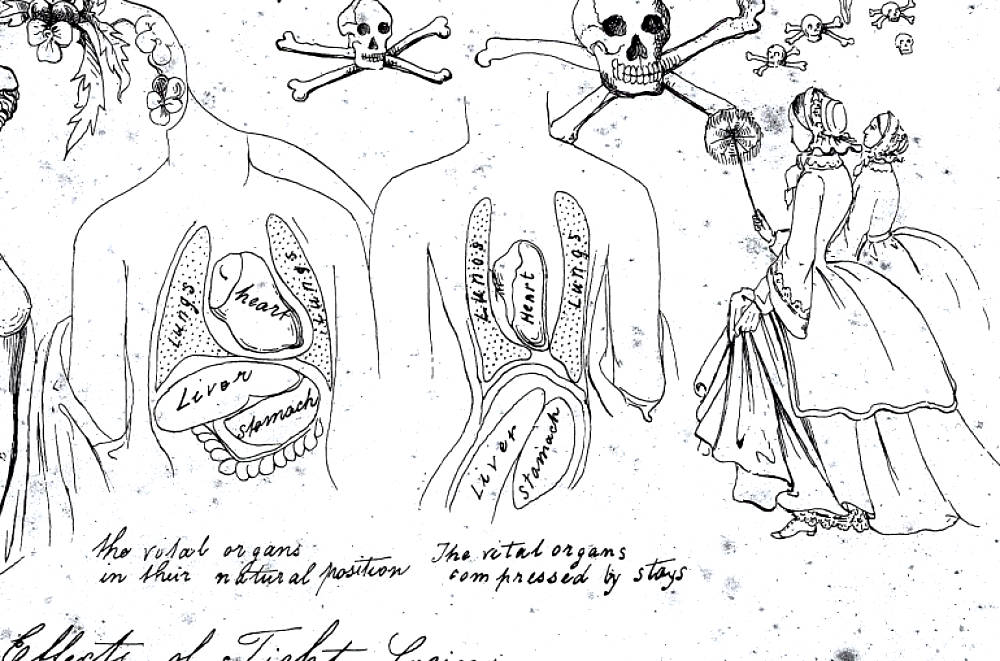 Lungs
heart
Lungs
Liver
stomach
Lungs
Heart
Lungs
Liver
stomach
the vital organs
in their natural position
The vital organs
compressed by stays
Effects of Tight Lacing